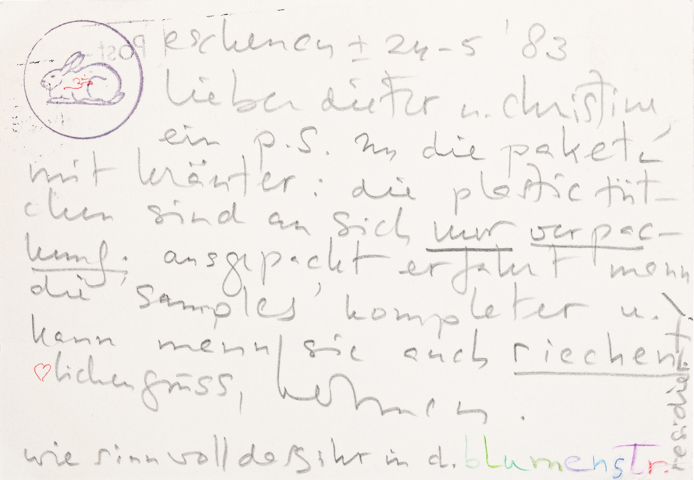 Post
eschenau ± 24-5 '83
lieber dieter u. christine,
ein p.s. zu die paket
mit kräuter: die plastic tüt-
chen sind an sich nur verpac-
kung. ausgepackt erfährt menn
die 'samples' kompleter u.
kann menn sie auch riechen!
♡lichen gruss, herman.
wie sinnvoll dass ihr in d. blumenstr.
residiert